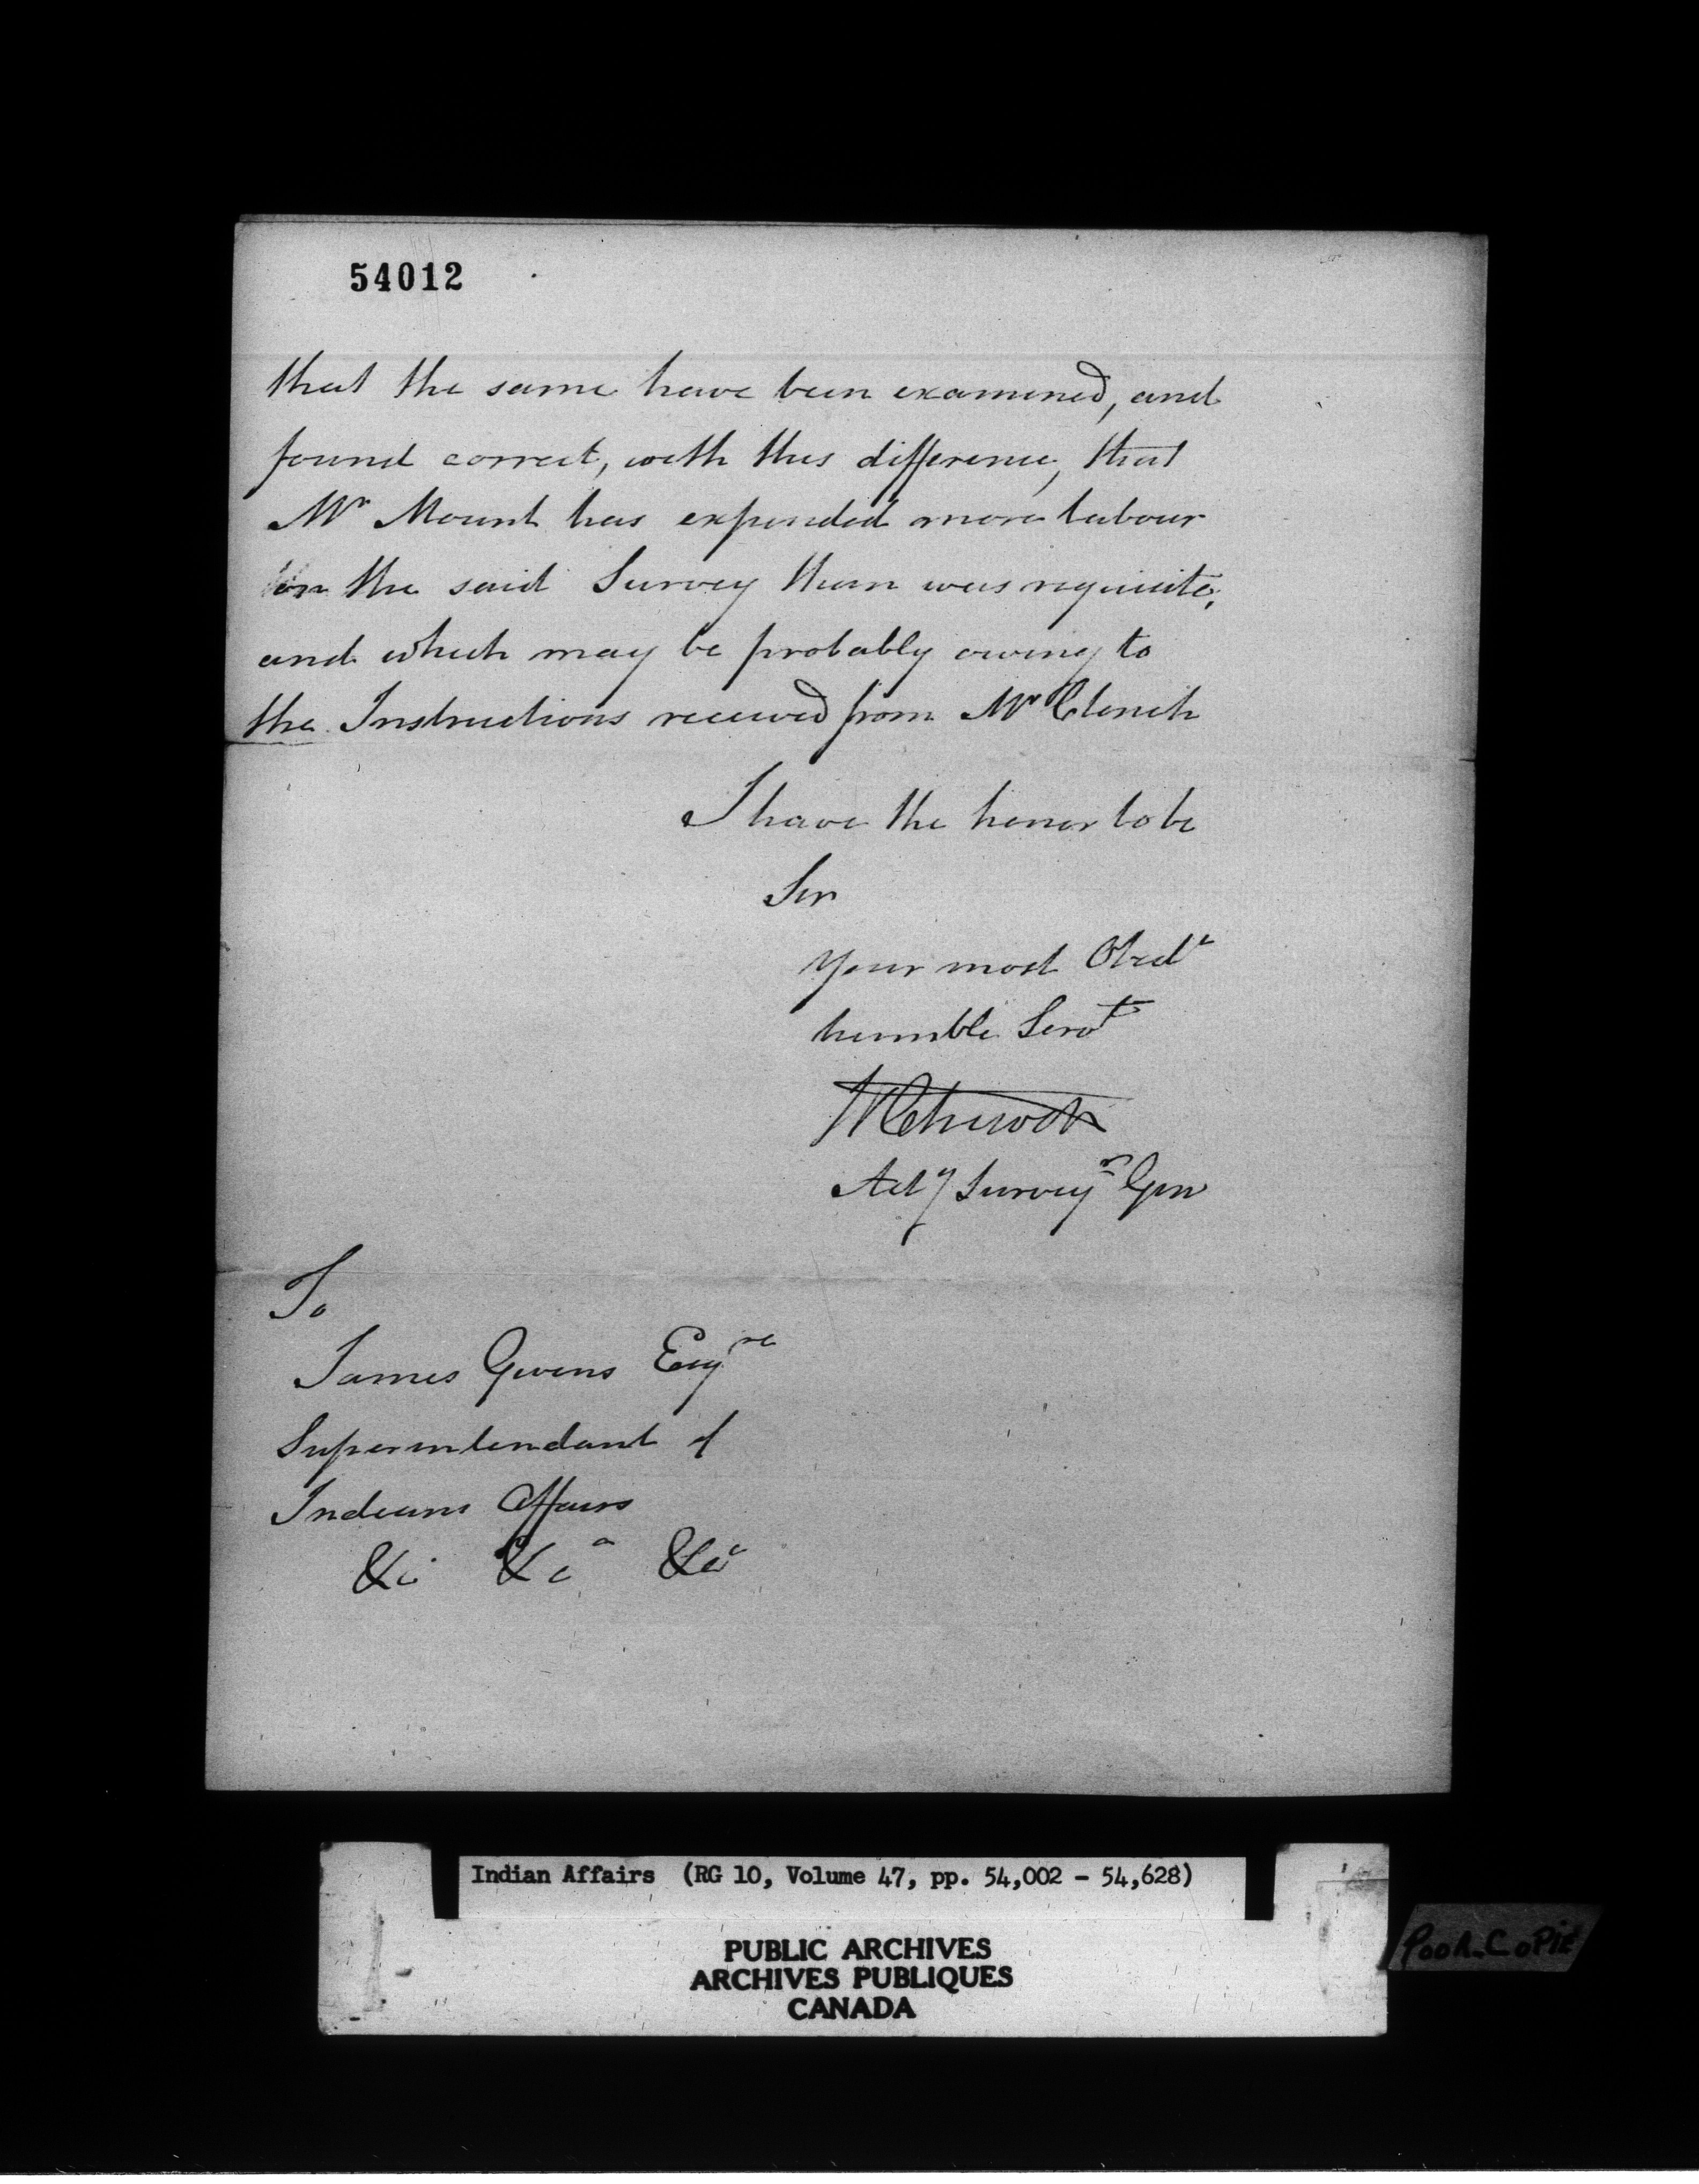 54012
that the same have been examined, and
found correct, with this difference, that
Mr Mount has expended more labour
on the said Survey than was requisite,
and which may be probably owing to
the Instructions received from Mr Clench
I have the honor to be
Sir
Your most Obedt
humble Servt
W Chewett
Actg Surveyr Gen
To
James Givens Esqre
Superintendant of
Indians Affairs
&c &ca &ca
Indian Affairs (RG 10, Volume 47, pp. 54,002 - 54,628)
PUBLIC ARCHIVES
ARCHIVES PUBLIQUES
CANADA
POOR COPIE